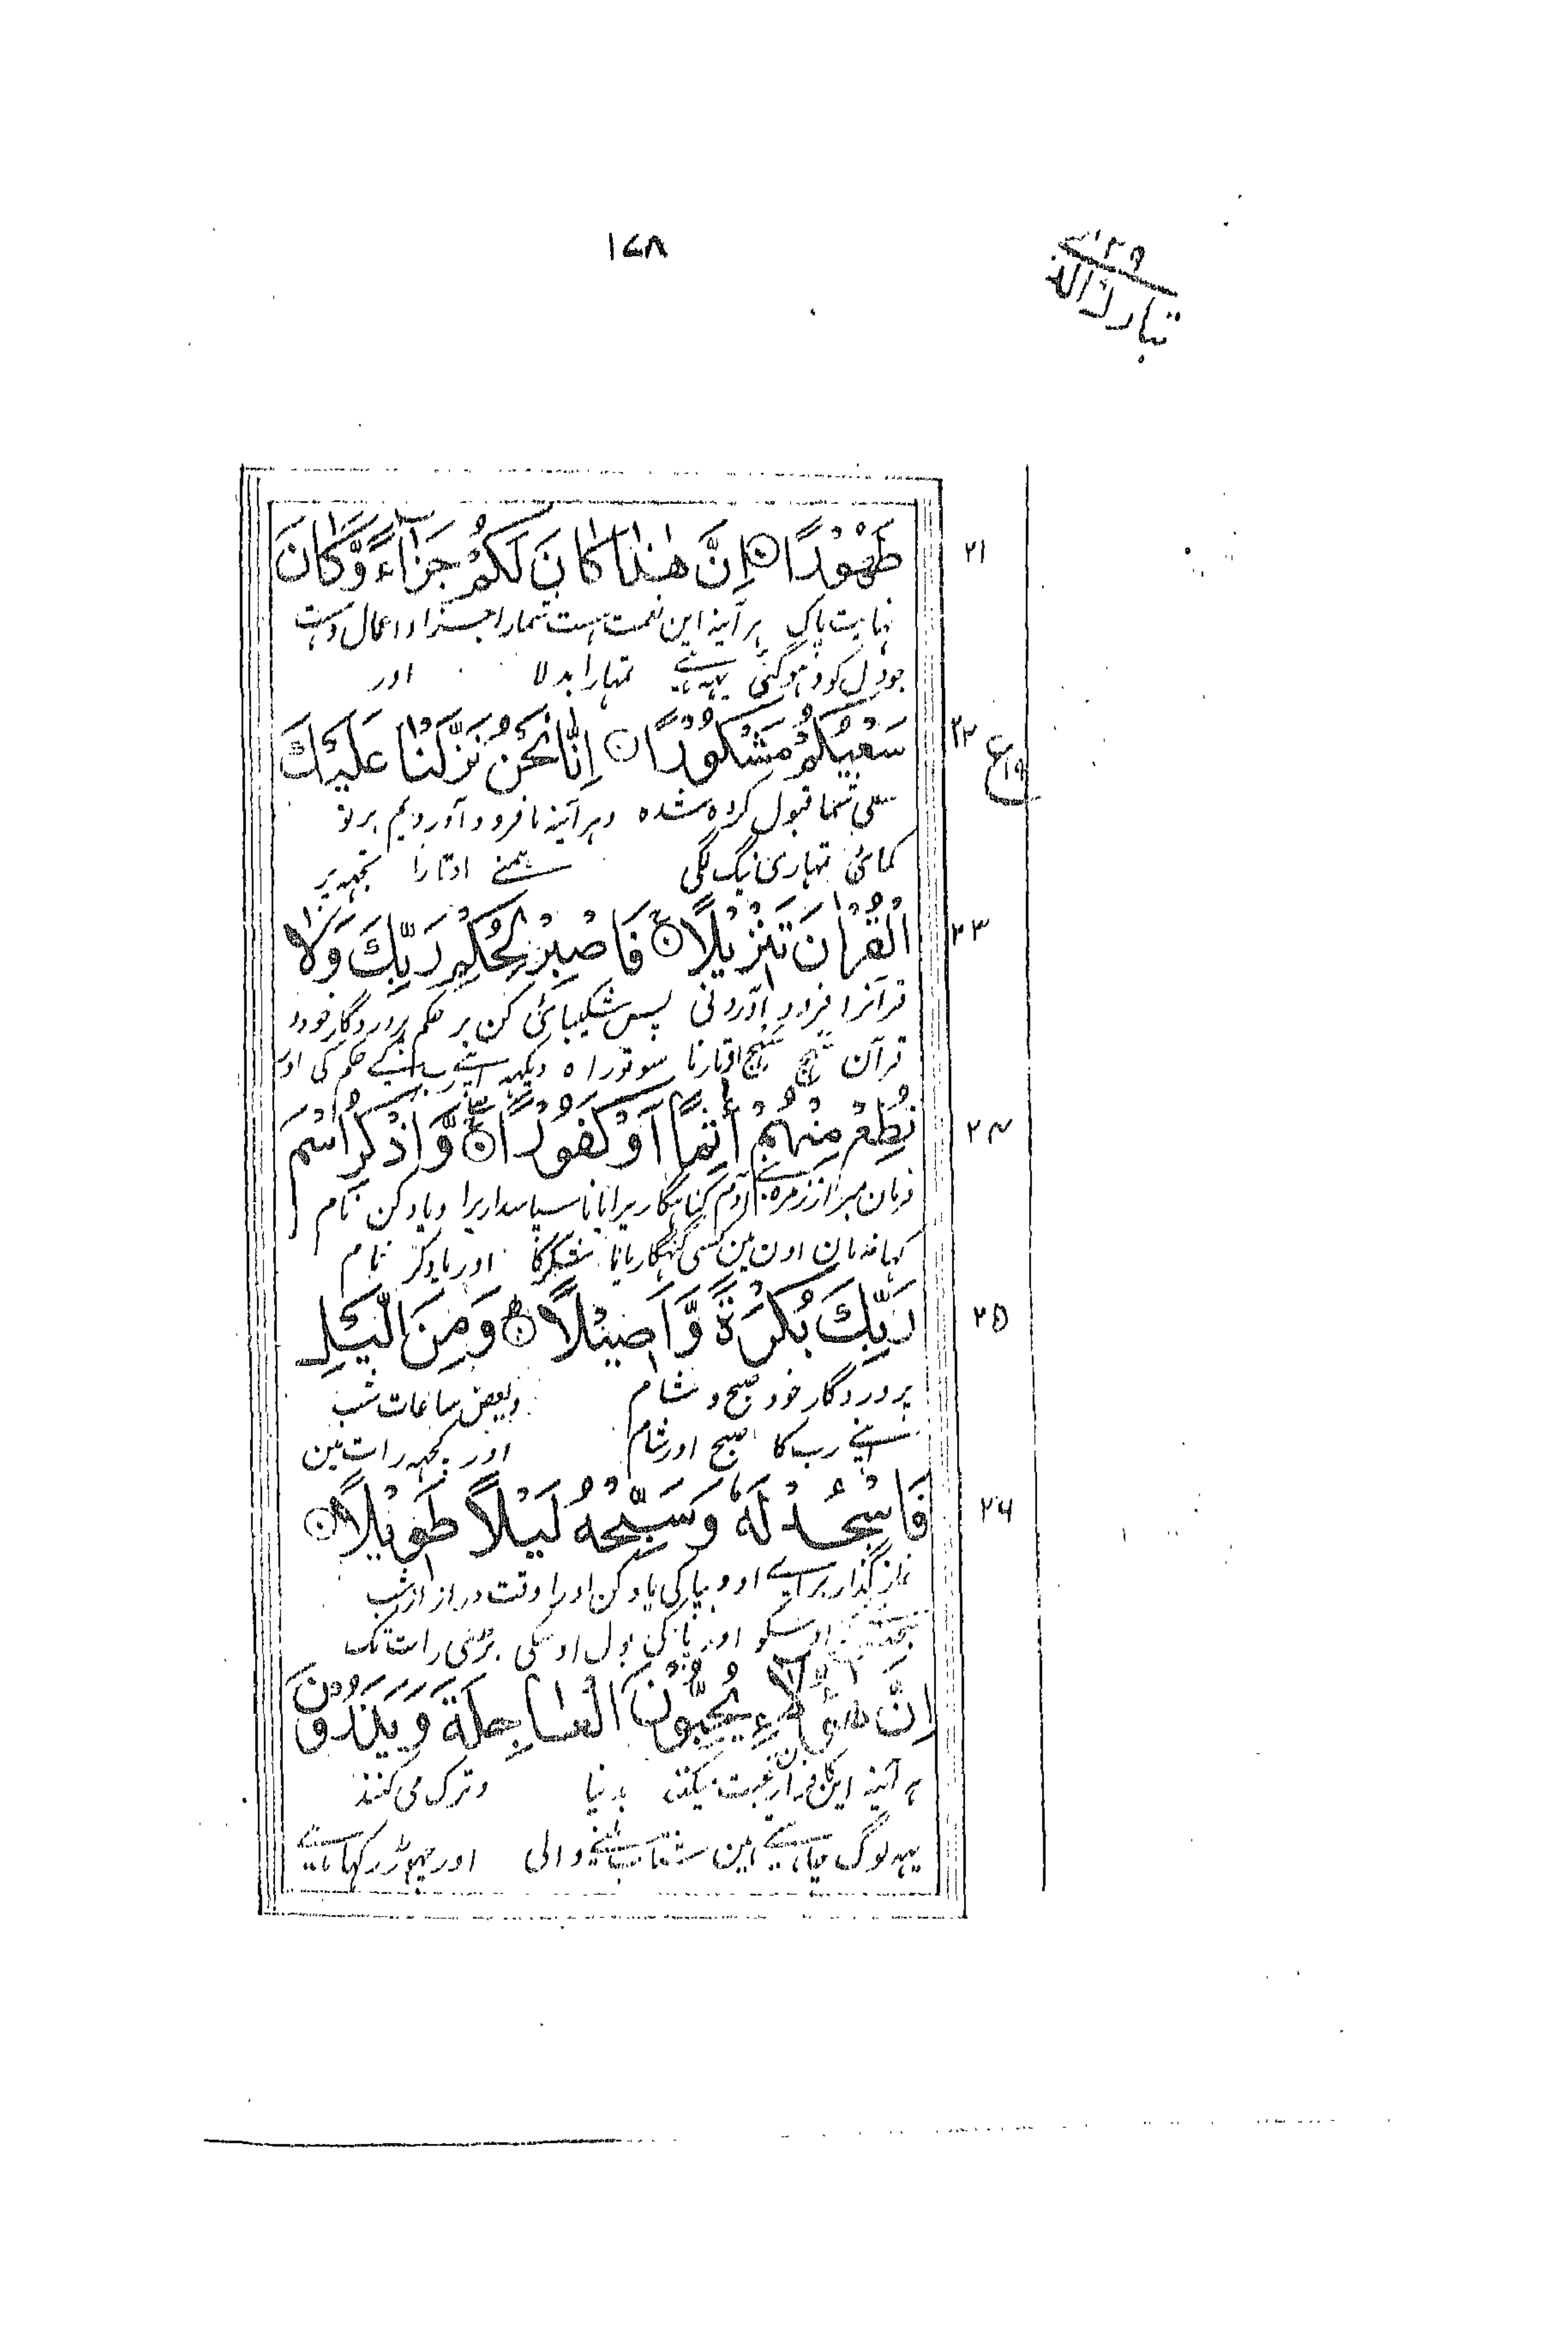 ۱۷۸
تبارك الذی ۲۹
طَهُوْرًا ۝ اِنَّ هٰذَا كَانَ لَكُمْ جَزَآءً وَّكَانَ ۲۱
نهایت پاک هر آینه این نعمت هست شمارا جزاء اعمال و هست
جو دل کو دہو گئی یہہ ہے تمہارا بدلا اور
سَعْيُكُمْ مَّشْكُوْرًا ۝ اِنَّا نَحْنُ نَزَّلْنَا عَلَيْكَ ۲۲
سعی شما قبول کرده شده و هر آینه ما فرود آوردیم بر تو
کمائی تمہاری نیگ لگی ہمنے اوتارا تجہہ پر
الْقُرْاٰنَ تَنْزِيْلًا ۝ فَاصْبِرْ لِحُكْمِ رَبِّكَ وَلَا ۲۳
قرآنرا فرود آوردنی پس شکیبائی کن بر حکم پروردگار خود و
قرآن سہج سہج اوتارنا سو تو راہ دیکہہ اپنے رب کے حکم کی اور
تُطِعْ مِنْهُمْ اٰثِمًا اَوْ كَفُوْرًا ۝ وَّاذْكُرِ اسْمَ ۲۴
فرمان مبر از زمره بنی آدم گناهگاریرا یا ناسپاسداریرا و یاد کن نام
کہا نہ مان اون مین کسی گنہگار یا نا شکرکا اور یاد کر نام
رَبِّكَ بُكْرَةً وَّاَصِيْلًا ۝ وَمِنَ الَّيْلِ ۲۵
پروردگار خود صبح و شام و بعض ساعات شب
اپنے رب کا صبح اور شام اور کچہہ رات مین
فَاسْجُدْ لَهٗ وَسَبِّحْهُ لَيْلًا طَوِيْلًا ۝ ۲۶
نماز گذار برائے او و بپاکی یاد کن اورا وقت دراز از شب
اوسکو اور پاکی بول اوسکی بڑی رات تک
اِنَّ هٰٓؤُلَآءِ يُحِبُّوْنَ الْعَاجِلَةَ وَيَذَرُوْنَ
هر آینه این کافران رغبت میکنند بدنیا و ترک می کنند
یہہ لوگ چاہتے ہین شتاب ملنے والی اور چہوڑ رکہا ہے